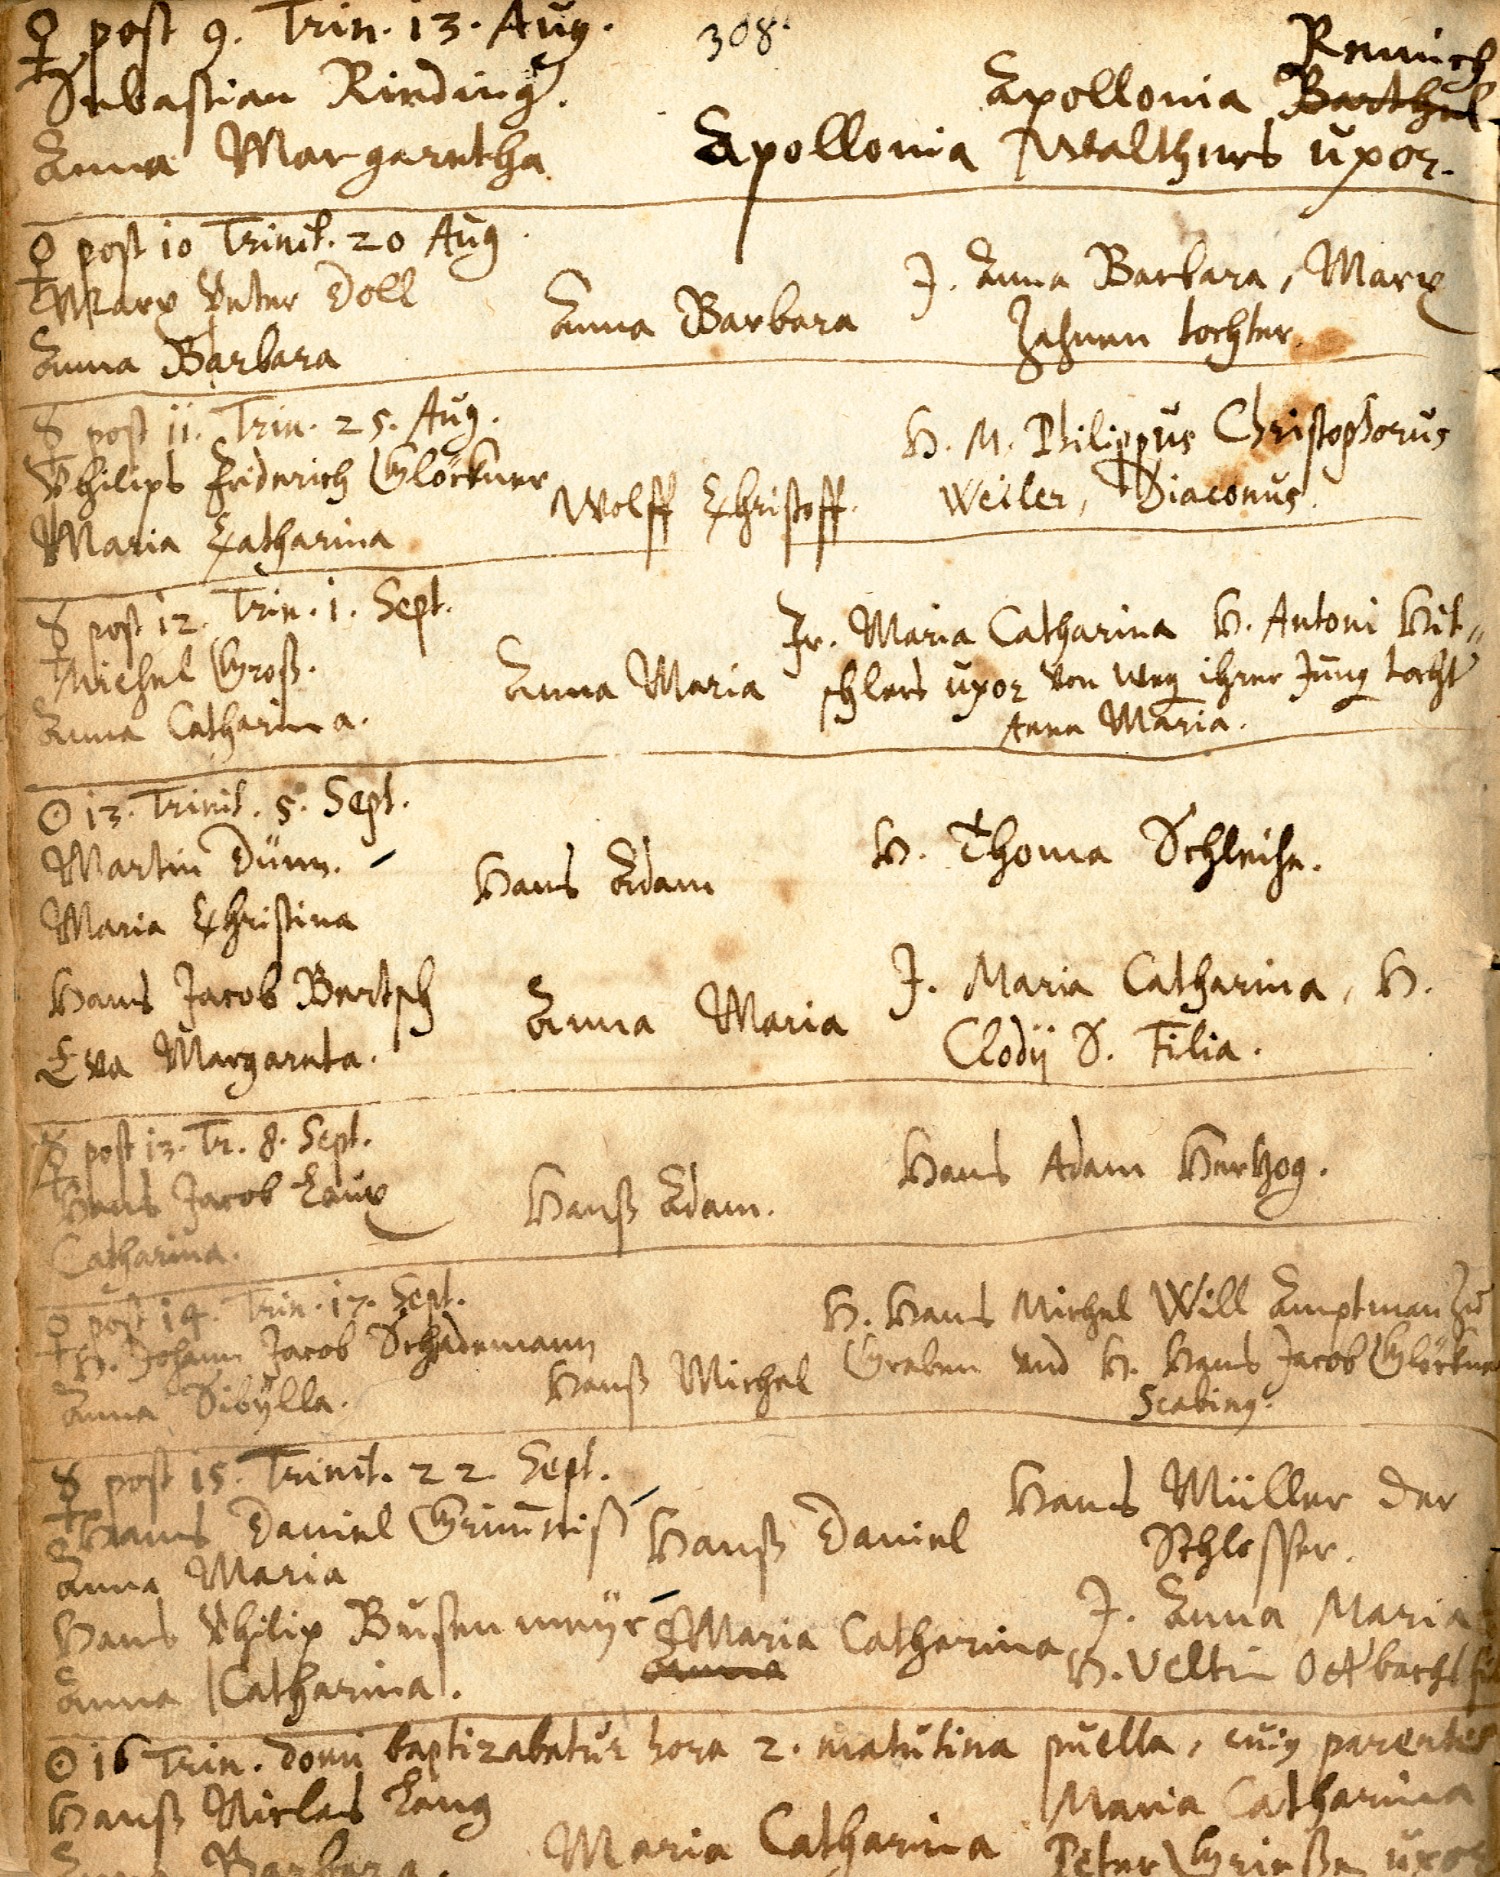 308.
♀ post 9. Trin. 13. Aug.
Sebastian Rinding.
Anna Margaretha
Apollonia
Apollonia Barthel
Walthers uxor.
♀ post 10 Trinit. 20 Aug.
Marx Peter Doll
Anna Barbara
Anna Barbara
J. Anna Barbara, Marx
Hahnen tochter.
☿ post 11. Trin. 25. Aug.
Philips Friderich Glöckner
Maria Catharina
Wolff Christoff.
H. M. Philippus Christophorus
Weiler, Diaconus.
☿ post 12. Trin. 1. Sept.
Michel Groß.
Anna Catharina.
Anna Maria
Fr. Maria Catharina H. Antoni Hit=
schlers uxor von weg ihrer Jung tocht
Anna Maria.
☉ 13. Trinit. 5. Sept.
Martin Dünn.
Maria Christina
Hans Adam
H. Thoma Schleihe.
Hans Jacob Bertsch
Eva Margareta.
Anna Maria
J. Maria Catharina, H.
Clodij S. Filia.
☿ post 13. Tr. 8. Sept.
Hans Jacob Laux
Catharina.
Hanß Adam.
Hans Adam Hertzog.
♀ post 14. Trin. 17. Sept.
H. Johann Jacob Schademann
Anna Sibylla.
Hanß Michel
H. Hans Michel Will Amptman zu
Graben und H. Hans Jacob Glöckner
Scabing.
☿ post 15. Trinit. 22 Sept.
Hans Daniel
Anna Maria
Hanß Daniel
Hans Müller der
Schlosser.
Hans Philip Busenmeyr
Anna Catharina.
Maria Catharina
Anna
J. Anna Maria
H. Veltin
☉ 16 Trin. domi baptizabatur hora 2. matutina puella, cuiq parentes
Hanß Niclas Lang
Barbara.
Maria Catharina
Maria Catharina
Peter uxor